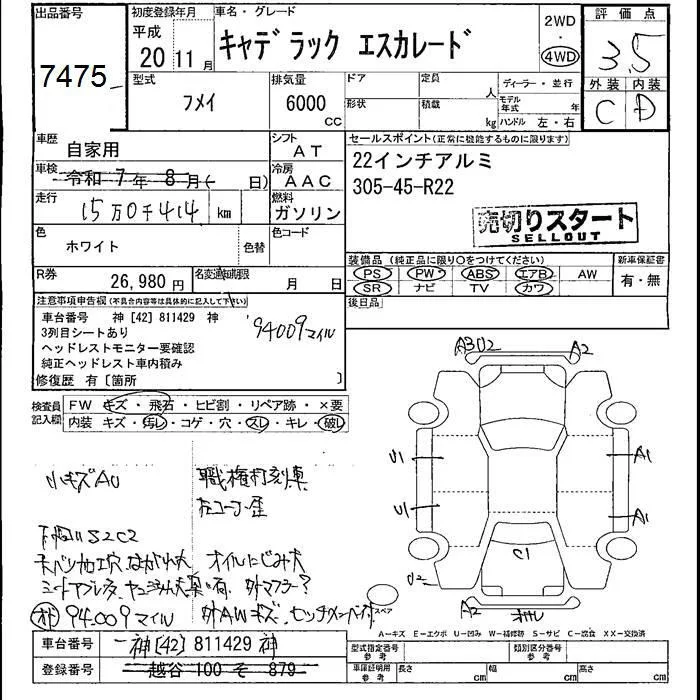 出品番号
7475
初度登録年月
平成
20 11月
車名・グレード
キャデラック エスカレード
2WD
・
4WD
評価点
3.5
外装 内装
C D
型式
フメイ
排気量
6000
CC
ドア
形状
定員
人
積載
kg
ディーラー・並行
モデル年式 年
ハンドル 左・右
車歴
自家用
シフト
AT
セールスポイント(正常に機能するものに限ります)
22インチアルミ
305-45-R22
売切りスタート
SELLOUT
車検
令和 7年 8月( 日)
冷房
AAC
走行
15万0千414 km
燃料
ガソリン
色
ホワイト
色替
色コード
装備品(純正品に限り○をつけてください)
PS PW ABS エアB AW
SR ナビ TV カワ
新車保証書
有・無
R券
26,980円
名変通知期限
月 日
後日品
注意事項申告欄(不具合内容等は具体的に記入して下さい)
車台番号 神[42]811429 神
3列目シートあり
ヘッドレストモニター要確認
純正ヘッドレスト車内積み
94009マイル
修復歴 有[箇所 ]
検査員記入欄
FW キズ・飛石・ヒビ割・リペア跡・×要
内装 キズ・汚レ・コゲ・穴・スレ・キレ・破レ
A3U2
A2
U1
A1
U1
A1
C1
U2
A2
スペア
小キズAU
職権打刻車
右コーナー歪
オイルにじみ大
外マフラー?
94.009マイル
外AWキズ.
A-キズ E-エクボ U-凹み W-補修跡 S-サビ C-腐食 XX-交換済
車台番号
神[42]811429 神
登録番号
越谷 100 そ 879
型式指定番号
参考
類別区分番号
参考
車庫証明用
参考
長さ cm
幅 cm
高さ cm